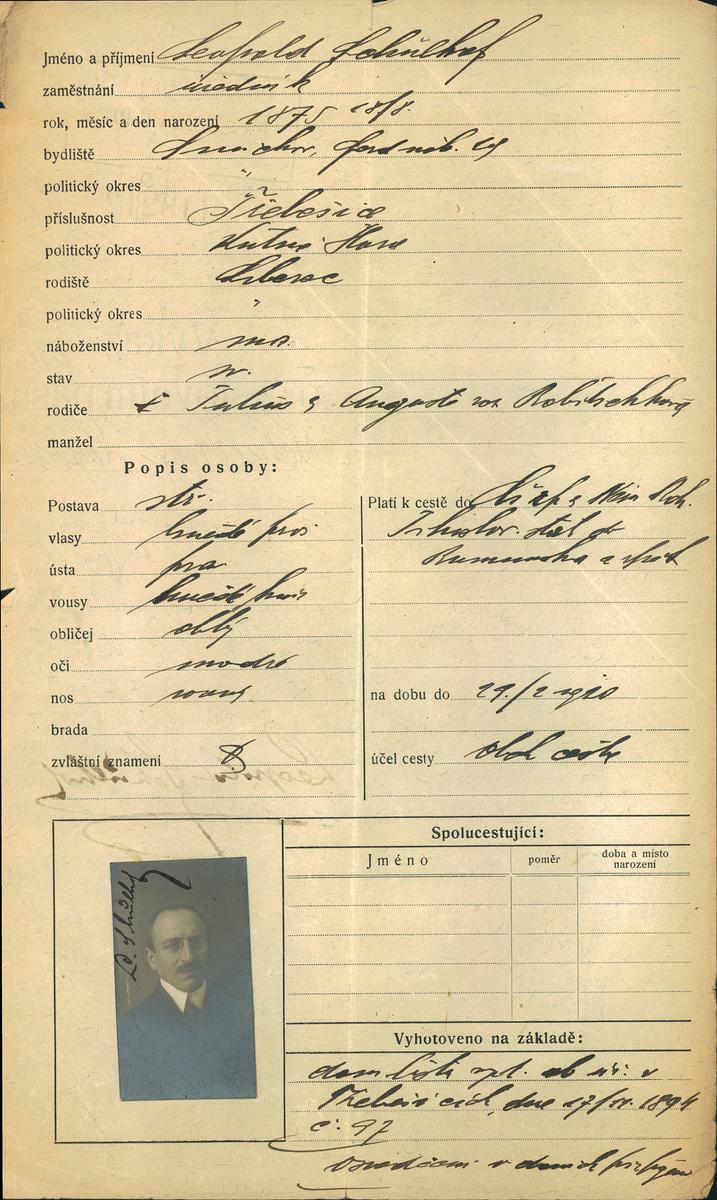 Jméno a příjmení Leopold Schulhof
zaměstnání úředník
rok, měsíc a den narození 1875 18/8.
bydliště Smíchov, Ferd náb. 19
politický okres "
příslušnost Třebešice
politický okres Kutná Hora
rodiště Liberec
politický okres "
náboženství
stav
rodiče Julius a Auguste roz Robitschková
manžel
Popis osoby:
Postava stř.
vlasy hnědé pros
ústa pra
vousy hnědé
obličej oblý
oči modré
nos rovný
brada
zvláštní znamení
Platí k cestě do
Rumunska a zpět
na dobu do 29./2 1920
účel cesty obch cesta
L. Schulhof
Spolucestující:
Jméno
poměr
doba a místo
narození
Vyhotoveno na základě:
dom listu vyd. ob úř: v
Třebešicích, dne 17/IV. 1894
č: 97